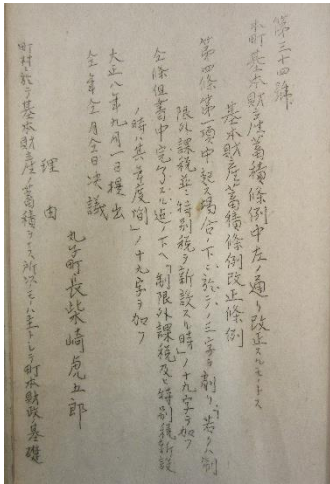 第三十四號
本町基本財産蓄積條例中左ノ通リ改正スルモノトス
基本財産蓄積條例改正條例
第四條第一項中起ス場合ノ下ニ「於テ」ノ三字ヲ削リ「若クハ制
限外課税並ニ特別税ヲ新設スル時」ノ十九字ヲ加フ
仝條但書中完了スル迄ノ下ヘ「制限外課税及ヒ特別税新設
ノ時ハ其首度例」ノ十九字ヲ加フ
大正八年九月一日提出
仝年仝月仝日決議
丸子町長柴崎虎五郎
理由
町村ニ於テ基本財産ノ蓄積ヲナス所以ノモノハ主トシテ町村財政ノ基礎